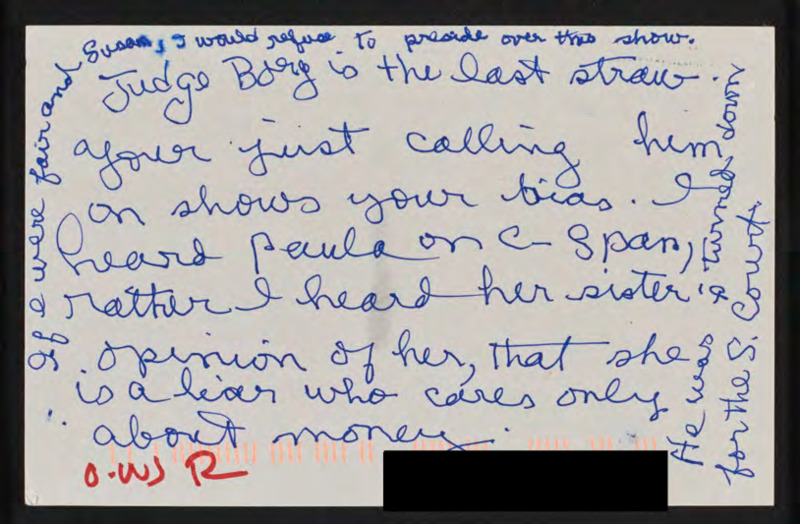 If I were fair and
Susan, I would refuse to preside over this show.
Judge Borg is the last straw.
Your just calling him
on shows your bias. I
heard Paula on C-Span,
rather I heard her sister's
opinion of her, that she
is a liar who cares only
about money.
He was turned down
for the S. Court.